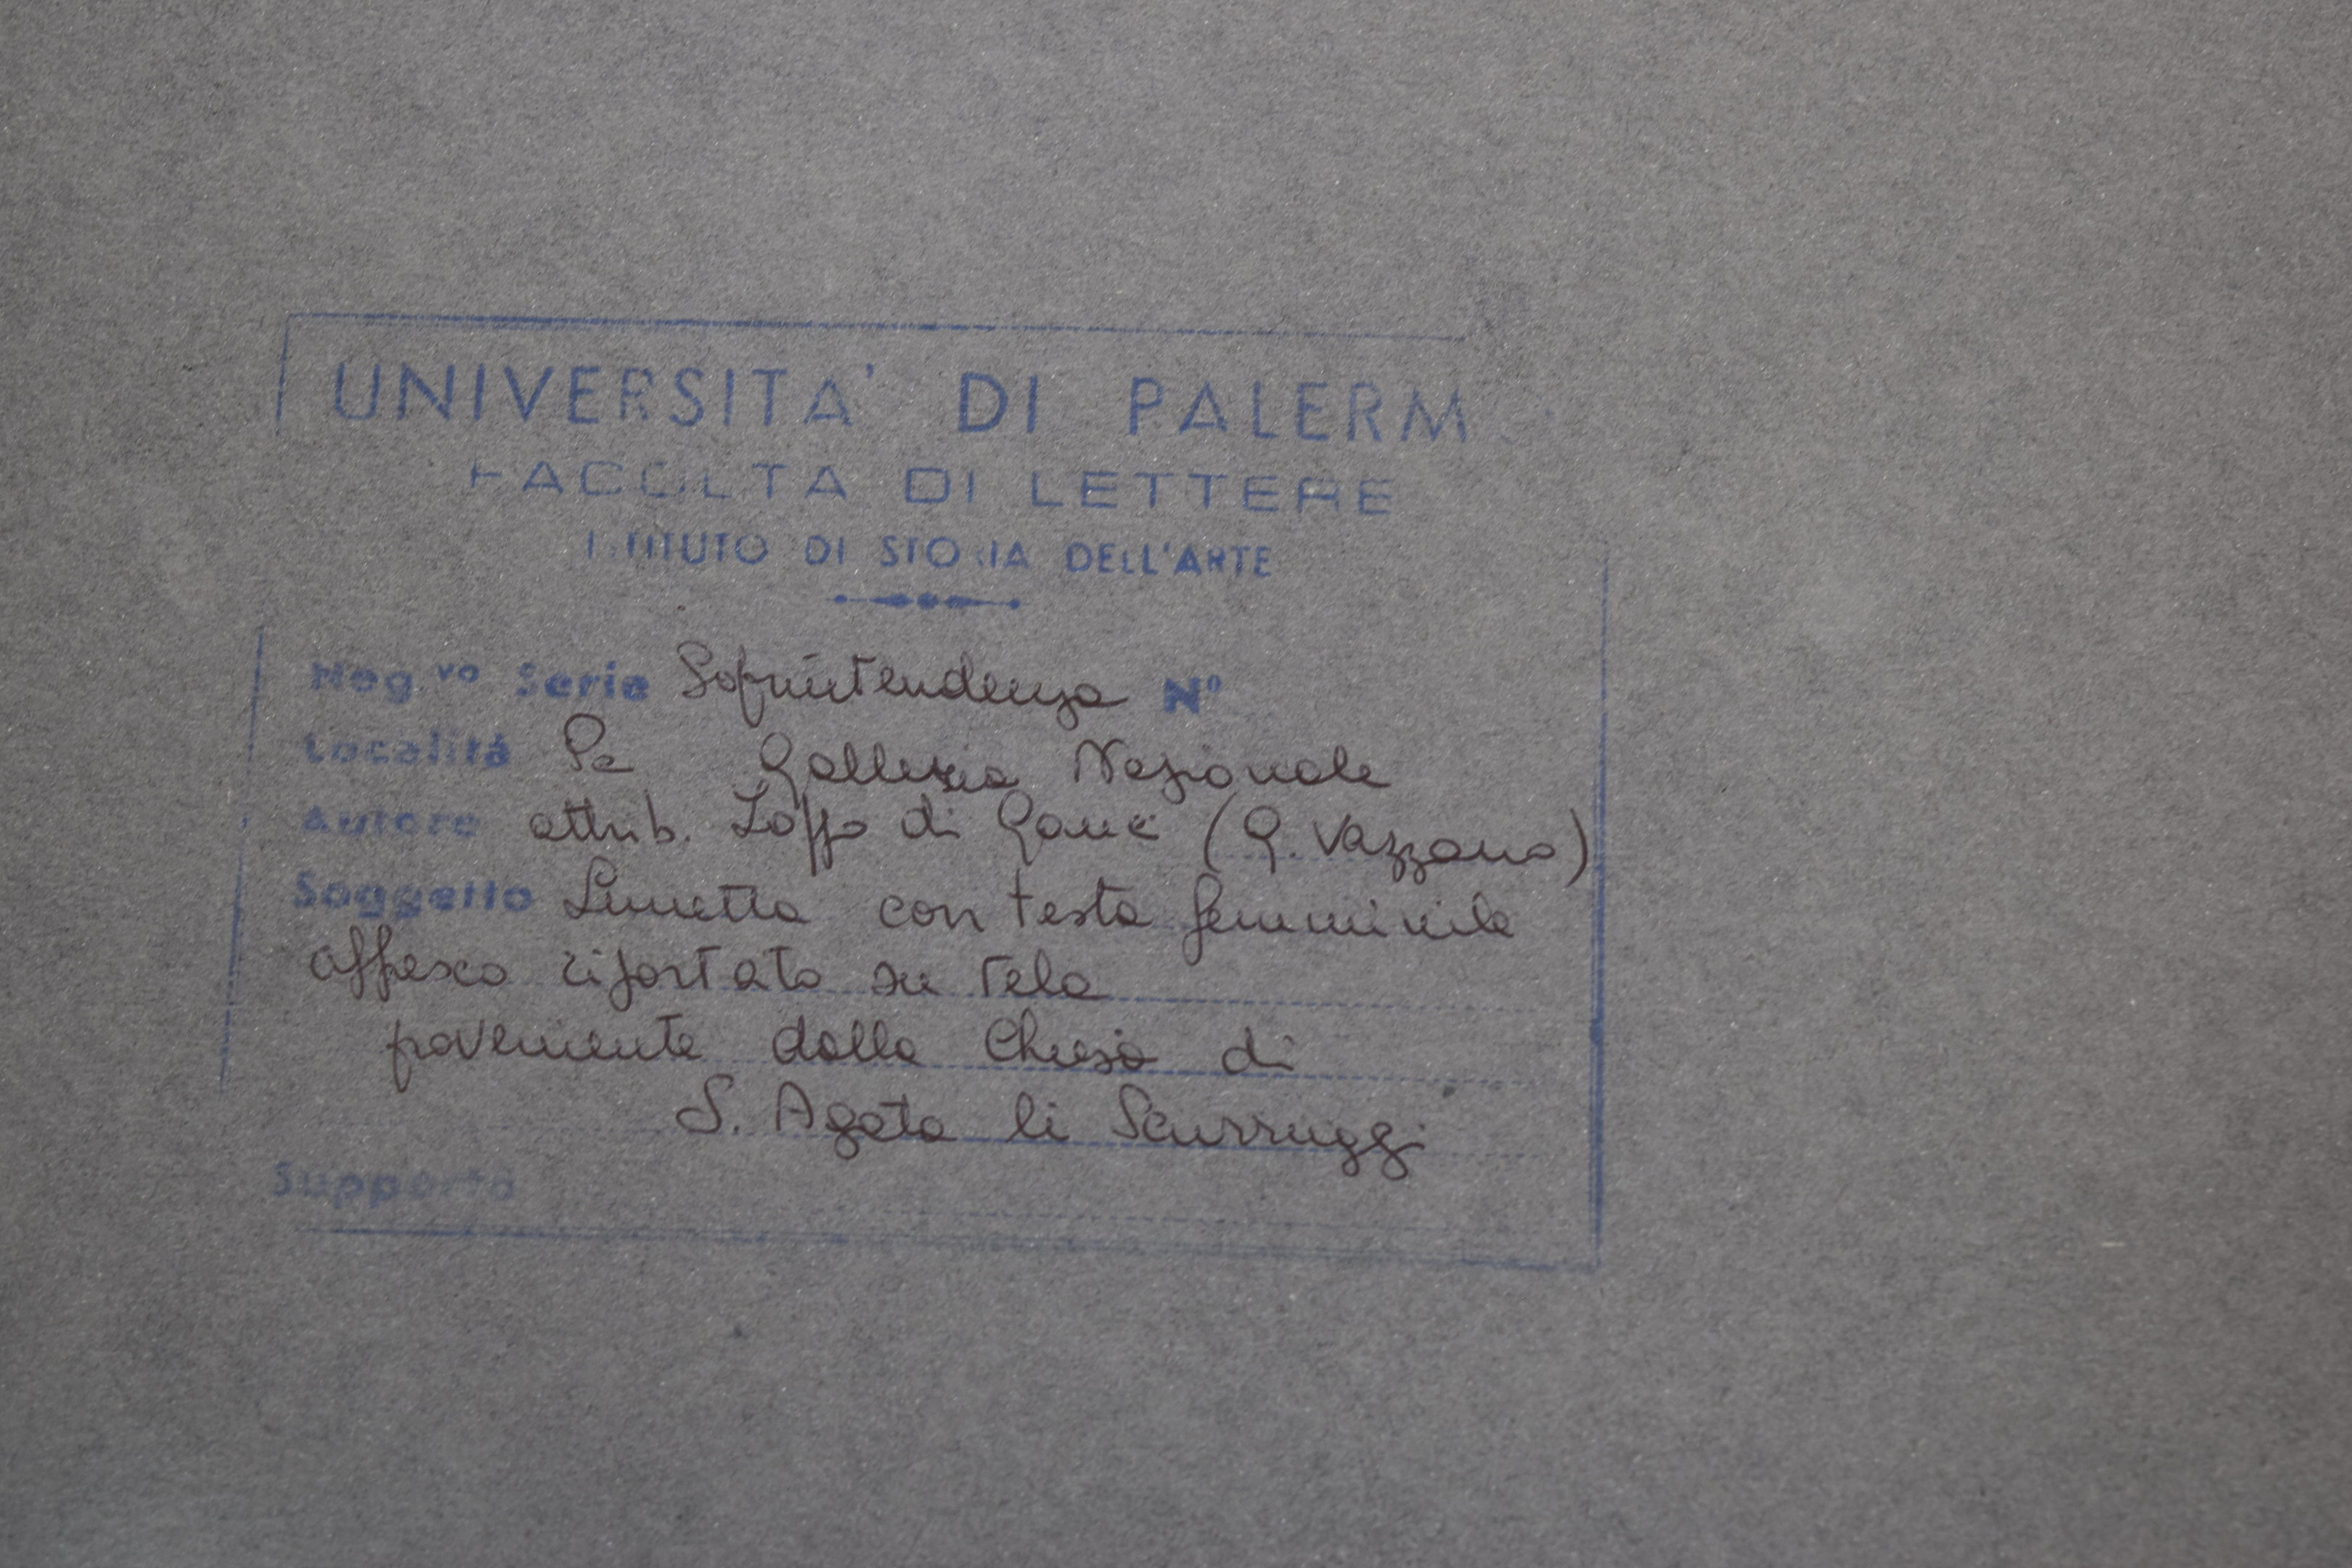 UNIVERSITA' DI PALERM
FACOLTA DI LETTERE
ISTITUTO DI STORIA DELL'ARTE
Neg.vo Serie Soprintendenza N°
Località Pa Galleria Nazionale
Autore attrib. Zoppo di Ganci (G. Vazzano)
Soggetto Lunetta con testa femminile
affresco riportato su tela
proveniente dalla Chiesa di
S. Agata li Scurruggi
Supporto